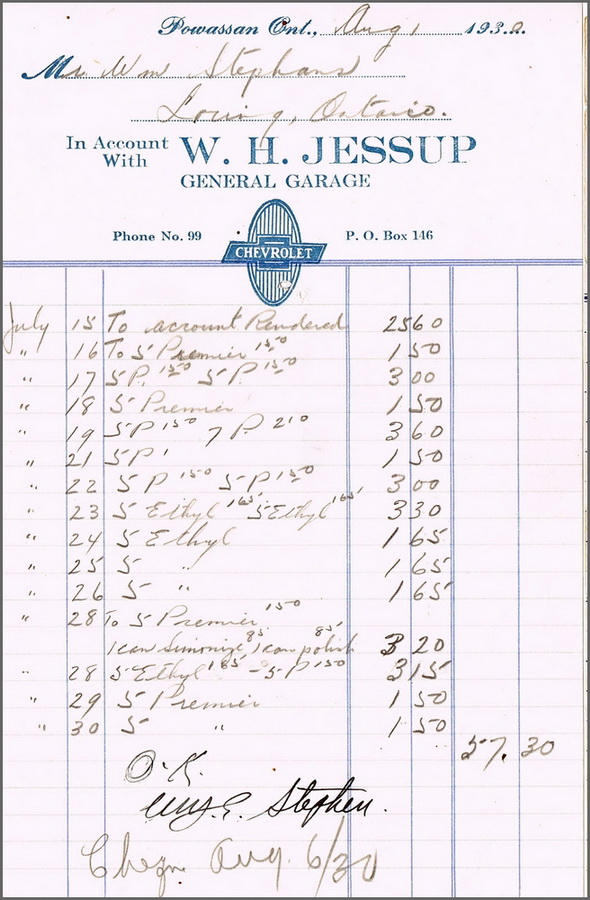 Powassan Ont., Aug 1 1930.
Mr Wm Stephans
Loring, Ontario.
In Account With W. H. JESSUP
GENERAL GARAGE
Phone No. 99 CHEVROLET P. O. Box 146
July 15 To account Rendered 25 60
" 16 To 5 Premier 150 1 50
" 17 5 P. 150 5 P. 150 3 00
" 18 5 Premier 1 50
" 19 5 P 150 7 P. 210 3 60
" 21 5 P ' 1 50
" 22 5 P 150 5 P 150 3 00
" 23 5 Ethyl 165 5 Ethyl 165 3 30
" 24 5 Ethyl 1 65
" 25 5 " 1 65
" 26 5 " 1 65
" 28 To 5 Premier 150
1 can Simonize 85 1 can polish 85 3 20
" 28 5 Ethyl 165 - 5 P 150 3 15
" 29 5 Premier 1 50
" 30 5 " 1 50
57. 30
O.K.
Wm. E. Stephen.
Cheq. Aug. 6/30